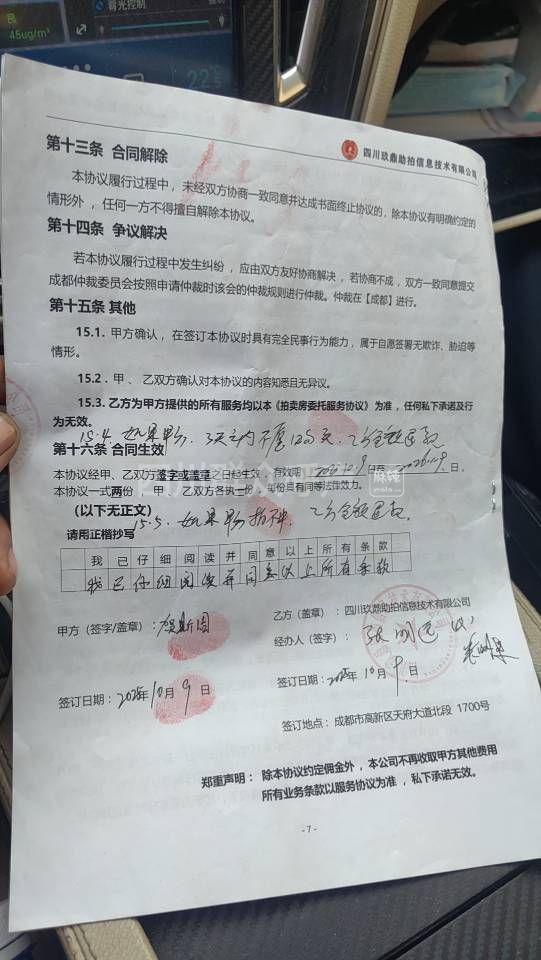 良
背光控制
45ug/m³
四川玖鼎助拍信息技术有限公司
第十三条 合同解除
本协议履行过程中，未经双方协商一致同意并达成书面终止协议的，除本协议有明确约定的
情形外，任何一方不得擅自解除本协议。
第十四条 争议解决
若本协议履行过程中发生纠纷，应由双方友好协商解决，若协商不成，双方一致同意提交
成都仲裁委员会按照申请仲裁时该会的仲裁规则进行仲裁。仲裁在【成都】进行。
第十五条 其他
15.1. 甲方确认，在签订本协议时具有完全民事行为能力，属于自愿签署无欺诈、胁迫等
情形。
15.2. 甲、乙双方确认对本协议的内容知悉且无异议。
15.3. 乙方为甲方提供的所有服务均以本《拍卖房委托服务协议》为准，任何私下承诺及行
为无效。
15.4. 如果甲方，3天之内不愿，乙方全额退款
第十六条 合同生效
本协议经甲、乙双方签字或盖章之日起生效，有效期
本协议一式两份，甲、乙双方各执一份，每份具有同等法律效力。
(以下无正文)
15.5. 如果甲方，乙方全额退款。
请用正楷抄写
我已仔细阅读并同意以上所有条款
我已仔细阅读并同意以上所有条款
甲方（签字/盖章）：
乙方（盖章）：四川玖鼎助拍信息技术有限公司
经办人（签字）：
签订日期：2025年10月9日
签订日期：2025年10月9日
签订地点：成都市高新区天府大道北段 1700号
郑重声明： 除本协议约定佣金外，本公司不再收取甲方其他费用
所有业务条款以服务协议为准，私下承诺无效。
-7-